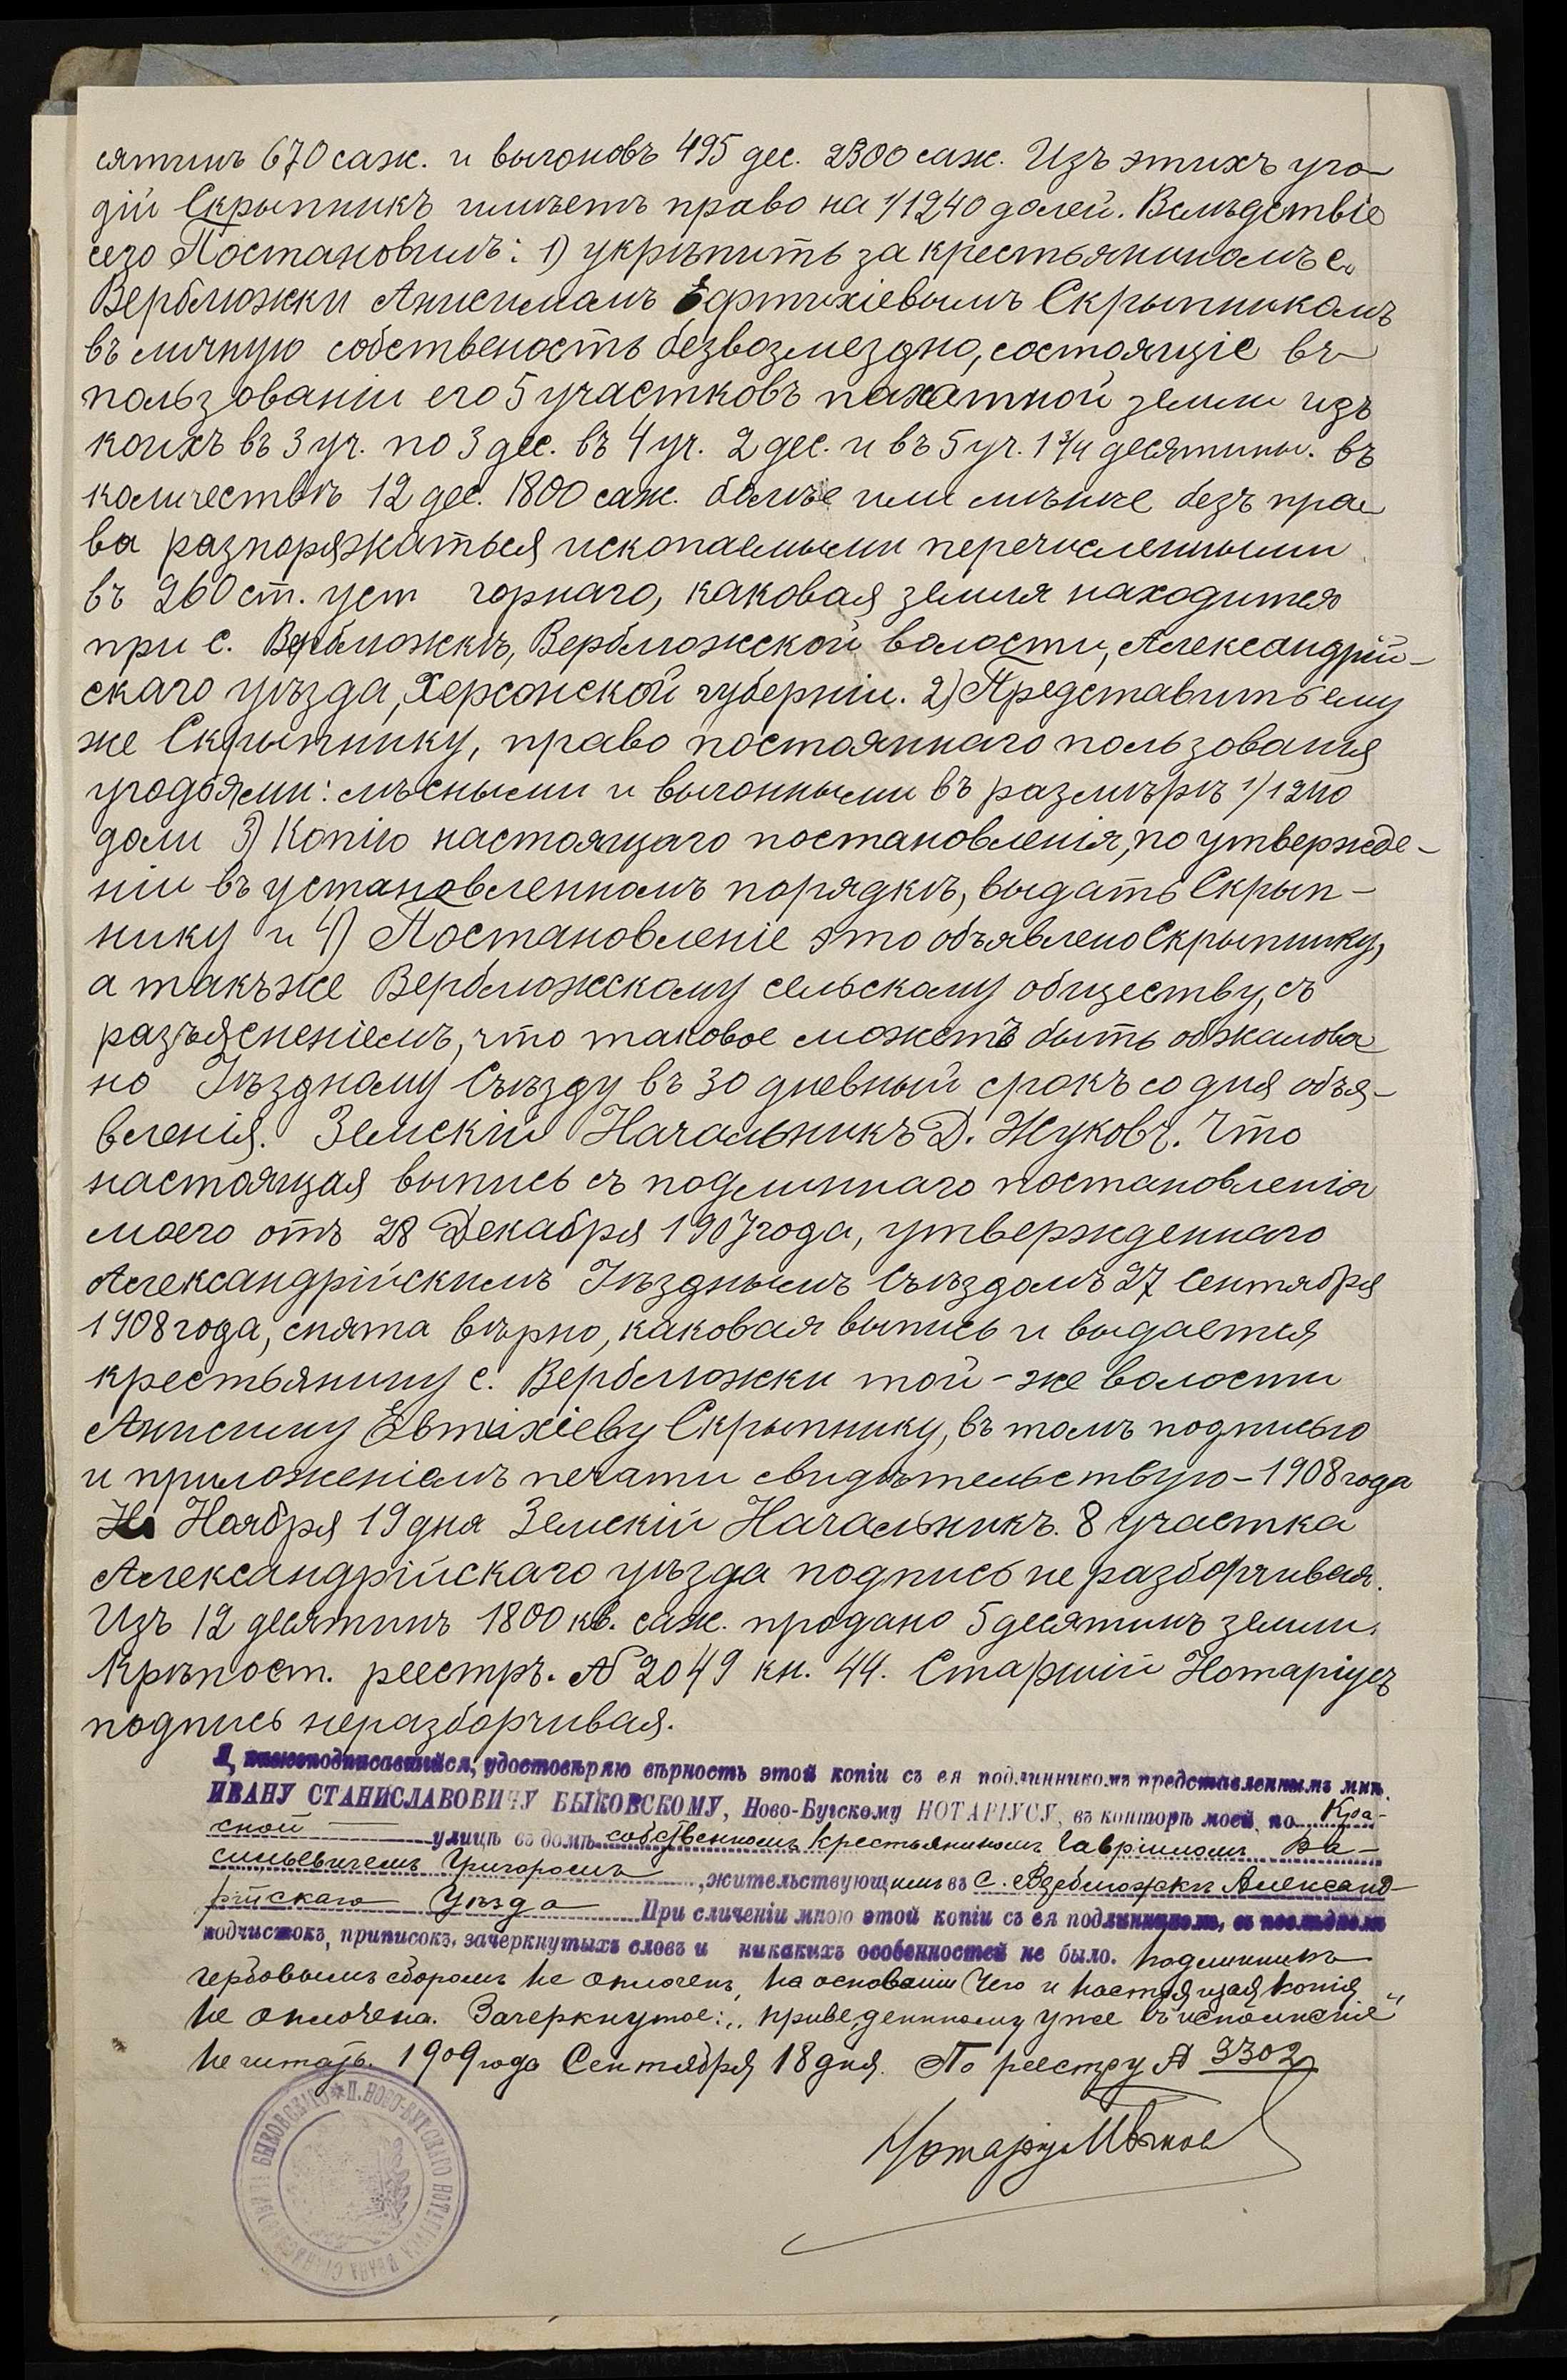 сятинъ 670 саж. и выгоновъ 495 дес. 2300 саж. Изъ этихъ уго-
дій Скрыпникъ имѣетъ право на 1/1240 долей. Вслѣдствіе
сего Постановилъ: 1) укрѣпить за крестьяниномъ с.
Верблюжки Анисимомъ Ефтихіевымъ Скрыпникомъ
въ личную собственость безвозмездно, состоящіе въ
пользованіи его 5 участковъ пахатной земли изъ
коихъ въ 3 уч. по 3 дес. въ 4 уч. 2 дес. и въ 5 уч. 1 3/4 десятины. въ
количествѣ 12 дес. 1800 саж. болѣе или мѣнѣе безъ пра-
ва разпоряжаться ископаемыми перечисленными
въ 260 ст. уст горнаго, каковая земля находится
при с. Верблюжкѣ, Верблюжской волости, Александрій-
скаго уѣзда, Херсонской губерніи. 2) Представить ему
же Скрыпнику, право постояннаго пользованія
угодьями: лѣсными и выгонными въ размѣрѣ 1/1240
доли 3) Копію настоящаго постановленія, по утвержде-
ніи въ установленномъ порядкѣ, выдать Скрып-
нику и 4) Постановленіе это объявлено Скрыпнику,
а такъже Верблюжскому сельскому обществу, съ
разъясненіемъ, что таковое можетъ быть обжалова
но Уѣздному Съѣзду въ 30 дневный срокъ со дня объя-
вленія. Земскій Начальникъ Д. Жуковъ. Что
настоящая выпись съ подлиннаго постановленія
моего отъ 28 Декабря 1907 года, утвержденнаго
Александрійскимъ Уѣзднымъ Съѣздомъ 27 Сентября
1908 года, снята вѣрно, каковая выпись и выдается
крестьянину с. Верблюжки той-же волости
Анисиму Евтихіеву Скрыпнику, въ томъ подписью
и приложеніемъ печати свидѣтельствую - 1908 года
Ноября 19 дня Земскій Начальникъ. 8 участка
Александрійскаго уѣзда подпись не разборчивая.
Изъ 12 десятинъ 1800 кв. саж. продано 5 десятинъ земли.
Крѣпост. реестръ. № 2049 кн. 44. Старшій Нотаріусъ
подпись неразборчивая.
Я, нижеподписавшійся, удостовѣряю вѣрность этой копіи съ ея подлинникомъ представленнымъ мнѣ,
ИВАНУ СТАНИСЛАВОВИЧУ БЫКОВСКОМУ, Ново-Бугскому НОТАРІУСУ, въ конторѣ моей, по Кра-
сной улицѣ въ домѣ собственномъ крестьяниномъ Гавріиломъ Ва-
сильевичемъ Григоромъ, жительствующимъ въ с. Верблюжкѣ Александ-
рійскаго Уѣзда При сличеніи мною этой копіи съ ея подлинникомъ, въ послѣднемъ
подчистокъ, приписокъ, зачеркнутыхъ словъ и никакихъ особенностей не было. Подлинникъ
гербовымъ сборомъ не оплоченъ, на основаніи чего и настоящая копія
не оплочена. Зачеркнутое: „приведенному уже въ исполненіе"
не читать. 1909 года Сентября 18 дня. По реестру № 3302
Нотаріусъ